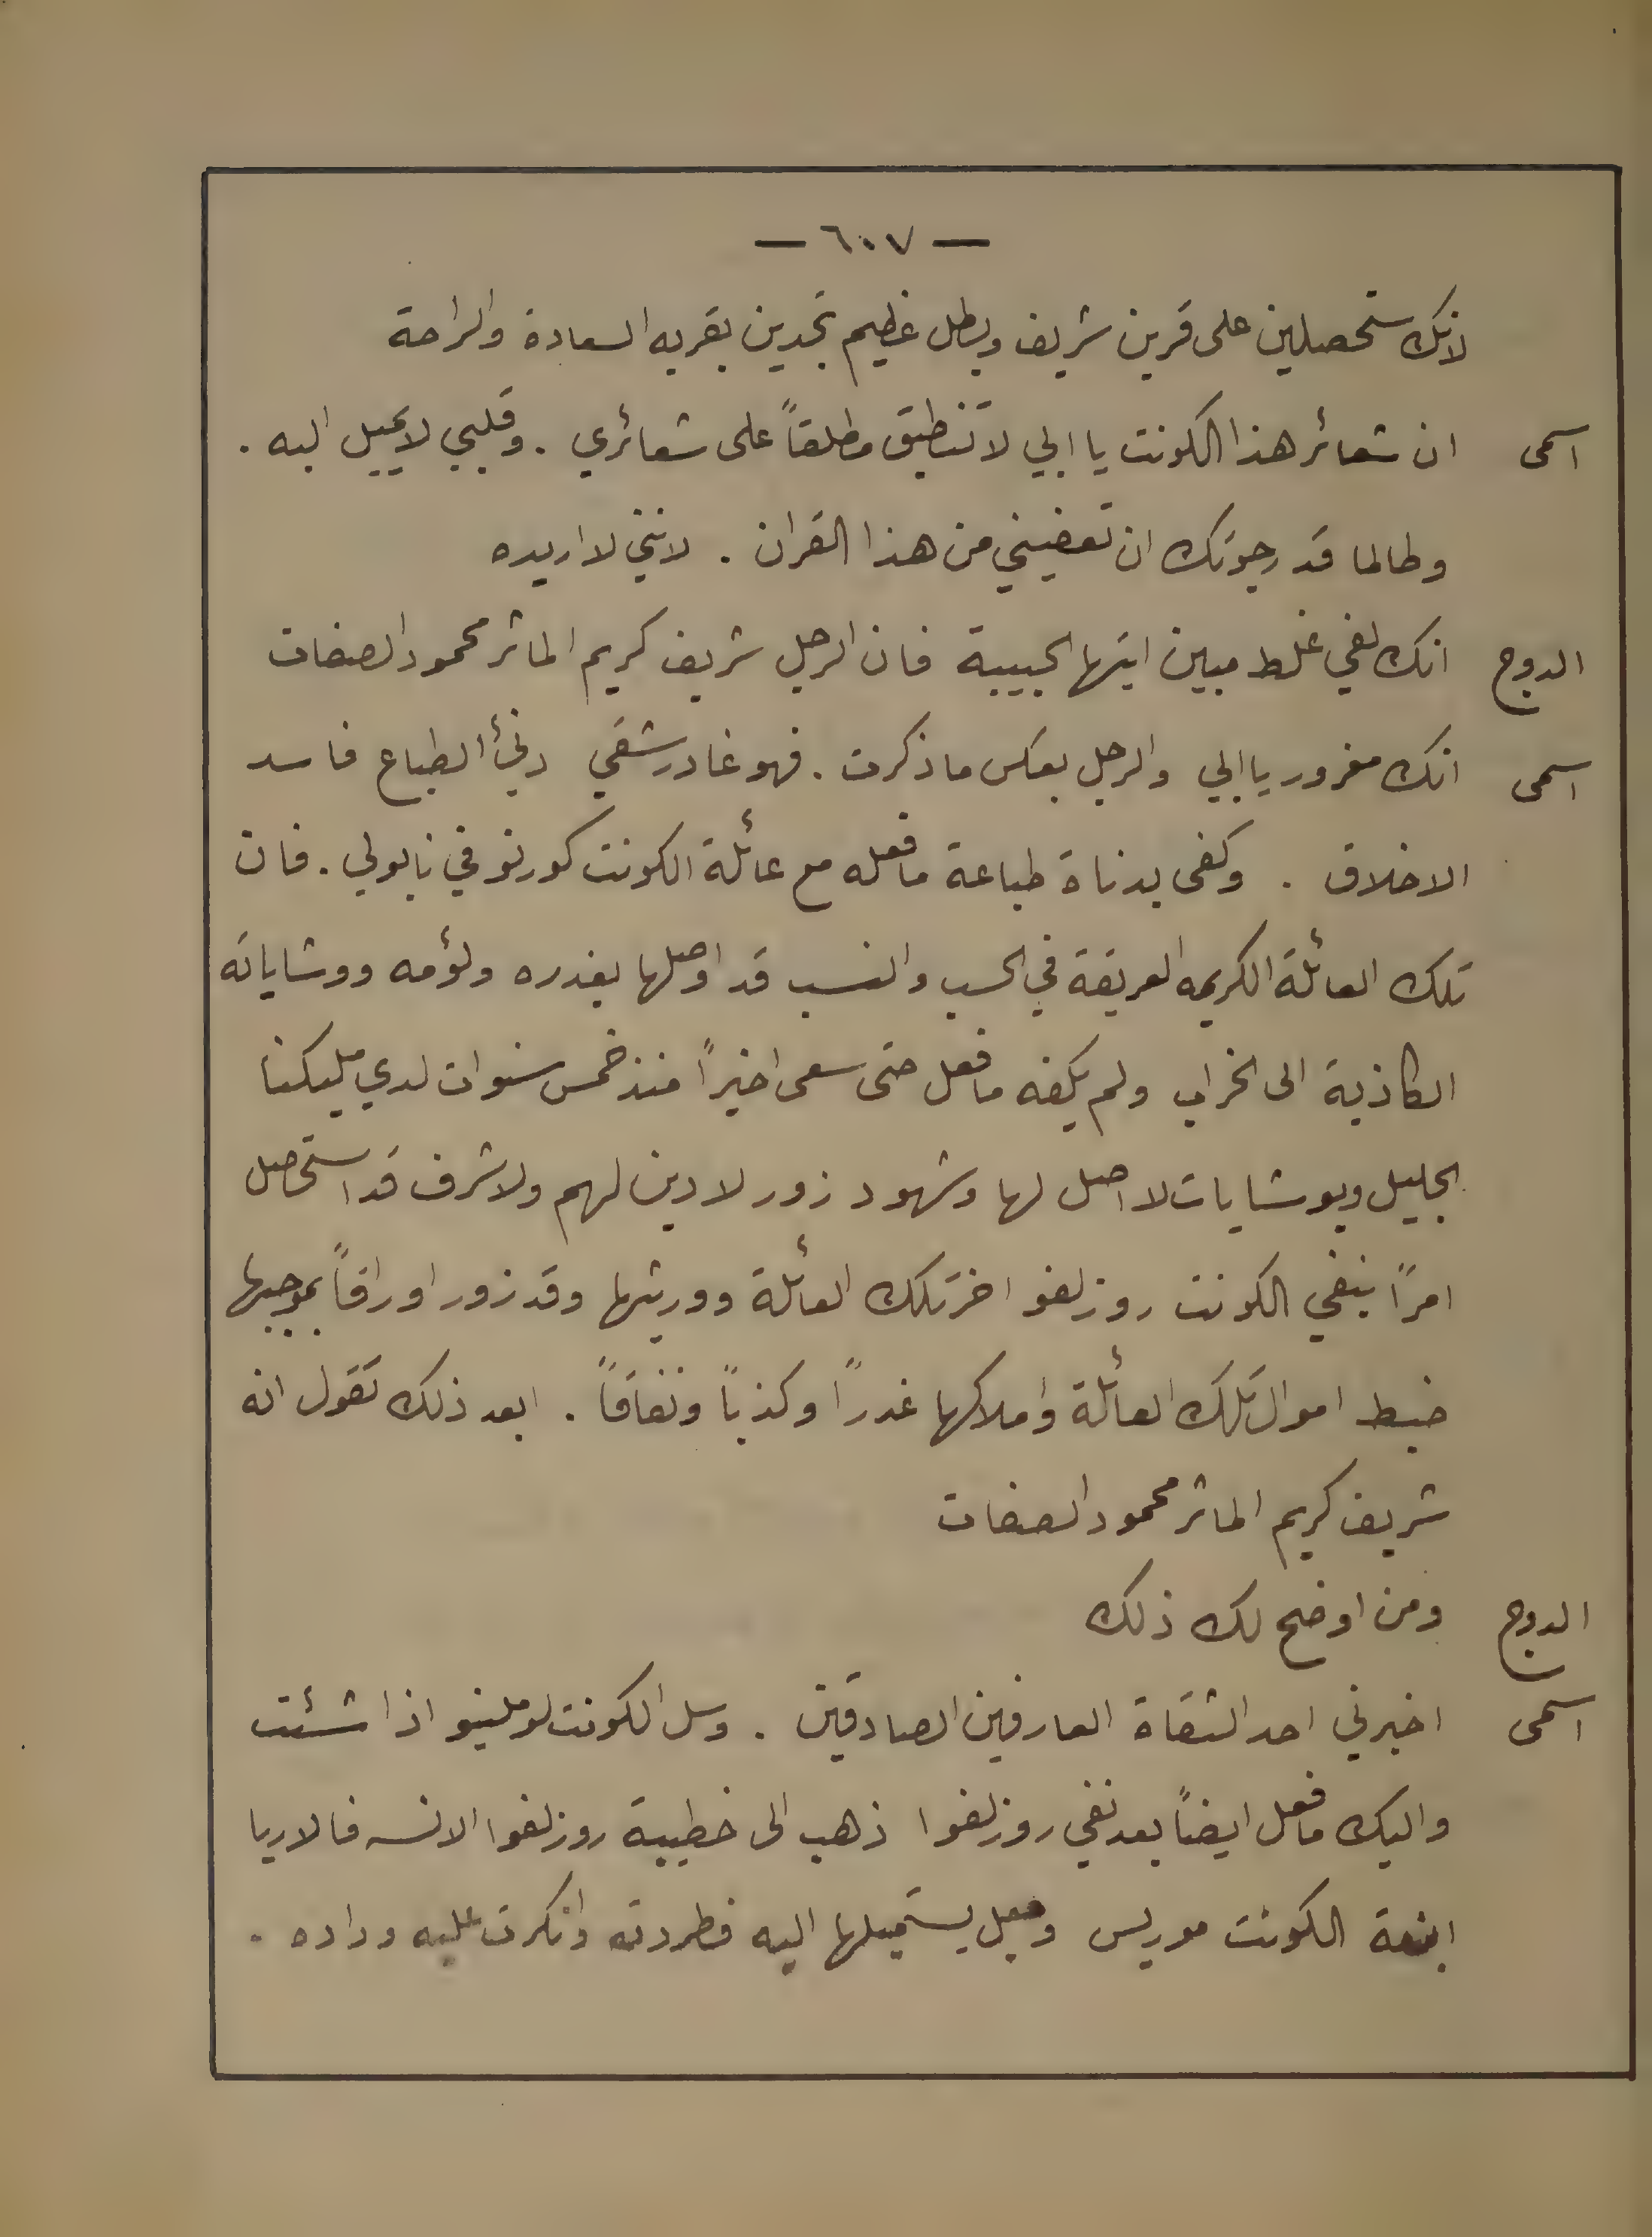 — ٦٠٧ —
لانك ستحصلين على قرين شريف وبطل عظيم تجدين بقربه السعادة والراحة
اسمى ان شعائر هذا الكونت يا ابي لا تنطبق مطلقاً على شعائري . وقلبي لا يميل اليه .
وطالما قد رجوتك ان تعفيني من هذا القران . لانني لا اريده
الدوج انك لفي غلط مبين ايتها الحبيبة فان الرجل شريف كريم الماثر محمود الصفات
اسمى انك مغرور يا ابي والرجل بعكس ما ذكرت . فهو غادر شقي دنئ الطباع فاسد
الاخلاق . وكفى بدناة طباعة ما فعله مع عائلة الكونت كورنو في نابولي . فان
تلك العائلة الكريمه العريقة في الحسب والنسب قد اوصلها بغدره ولؤمه ووشاياته
الكاذبة الى الخراب ولم يكفه ما فعل حتى سعى اخيراً منذ خمس سنوات لدي مليكنا
الجليل وبوشايات لا اصل لها وشهود زور لا دين لهم ولا شرف قد استحاصل
امراً بنفي الكونت روزلفو اخر تلك العائلة ووريثها وقد زور اوراقاً بموجبها
ضبط اموال تلك العائلة واملاكها غدراً وكذباً ونفاقاً . ابعد ذلك تقول انه
شريف كريم الماثر محمود الصفات
الدوج ومن اوضح لك ذلك
اسمى اخبرني احد الثقاة العارفين الصادقين . وسل الكونت لوملينو اذا شئت
واليك ما فعل ايضاً بعد نفي روزلفوا ذهب الى خطيبة روزلفوا الانسه فالاريا
ابنة الكونت موريس وجعل يستميلها اليه فطردته وانكرت عليه وداده .